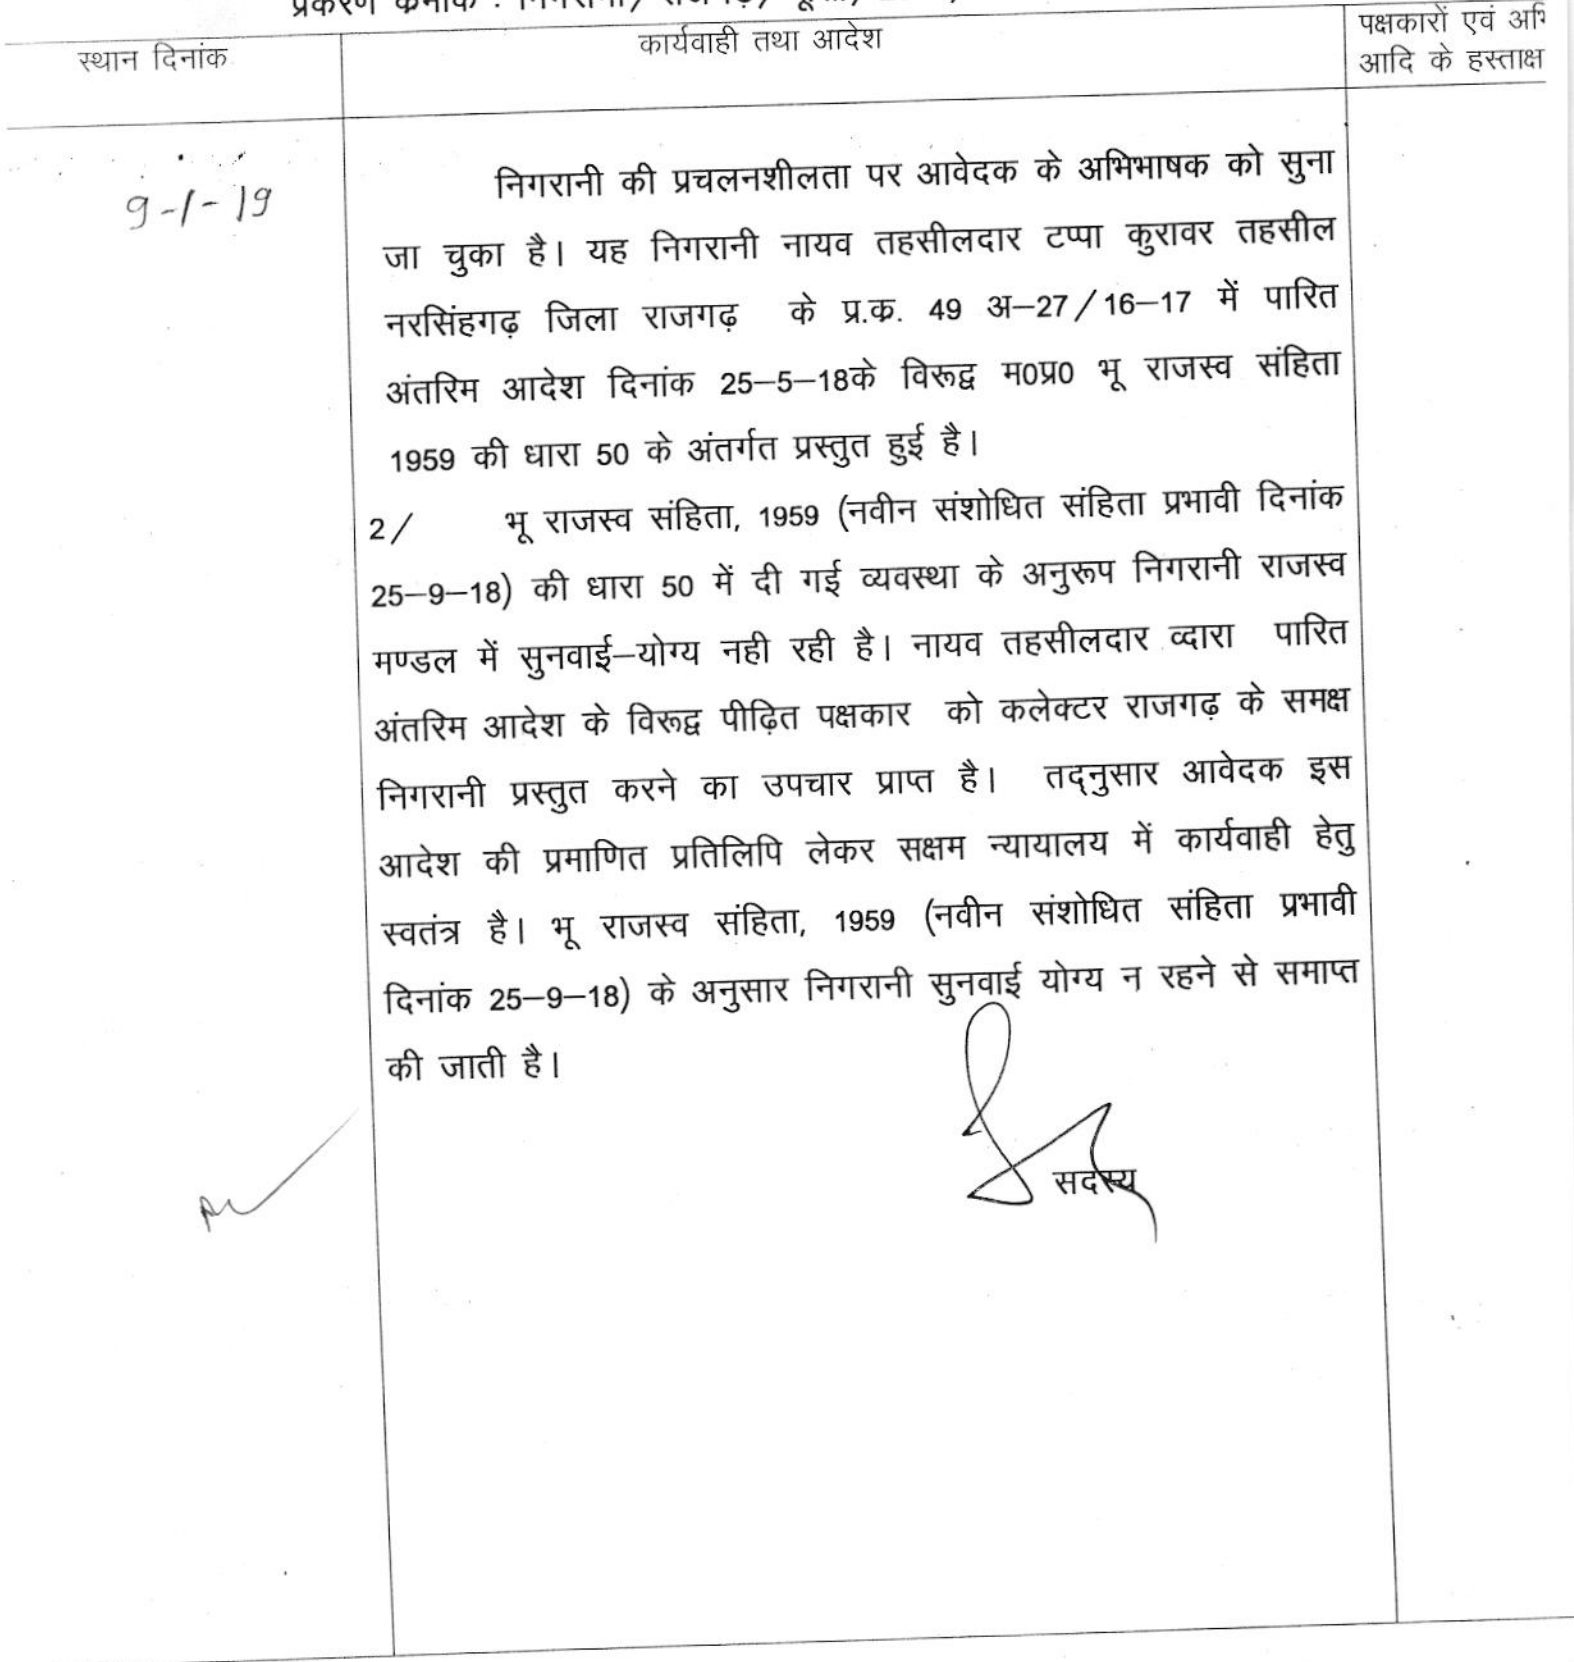 स्थान दिनांक
कार्यवाही तथा आदेश
पक्षकारों एवं
आदि के
9-1-19
निगरानी की प्रचलनशीलता पर आवेदक के अभिभाषक को सुना
जा चुका है। यह निगरानी नायव तहसीलदार टप्पा कुरावर तहसील
नरसिंहगढ़ जिला राजगढ़ के प्र.क. 49 अ–27/16–17 में पारित
अंतरिम आदेश दिनांक 25–5–18के विरूद्व म0प्र0 भू राजस्व संहिता
1959 की धारा 50 के अंतर्गत प्रस्तुत हुई है।
2/ भू राजस्व संहिता, 1959 (नवीन संशोधित संहिता प्रभावी दिनांक
25–9–18) की धारा 50 में दी गई व्यवस्था के अनुरूप निगरानी राजस्व
मण्डल में सुनवाई–योग्य नही रही है। नायव तहसीलदार व्दारा पारित
अंतरिम आदेश के विरूद्व पीढ़ित पक्षकार को कलेक्टर राजगढ़ के समक्ष
निगरानी प्रस्तुत करने का उपचार प्राप्त है। तद्नुसार आवेदक इस
आदेश की प्रमाणित प्रतिलिपि लेकर सक्षम न्यायालय में कार्यवाही हेतु
स्वतंत्र है। भू राजस्व संहिता, 1959 (नवीन संशोधित संहिता प्रभावी
दिनांक 25–9–18) के अनुसार निगरानी सुनवाई योग्य न रहने से समाप्त
की जाती है।
सदस्य